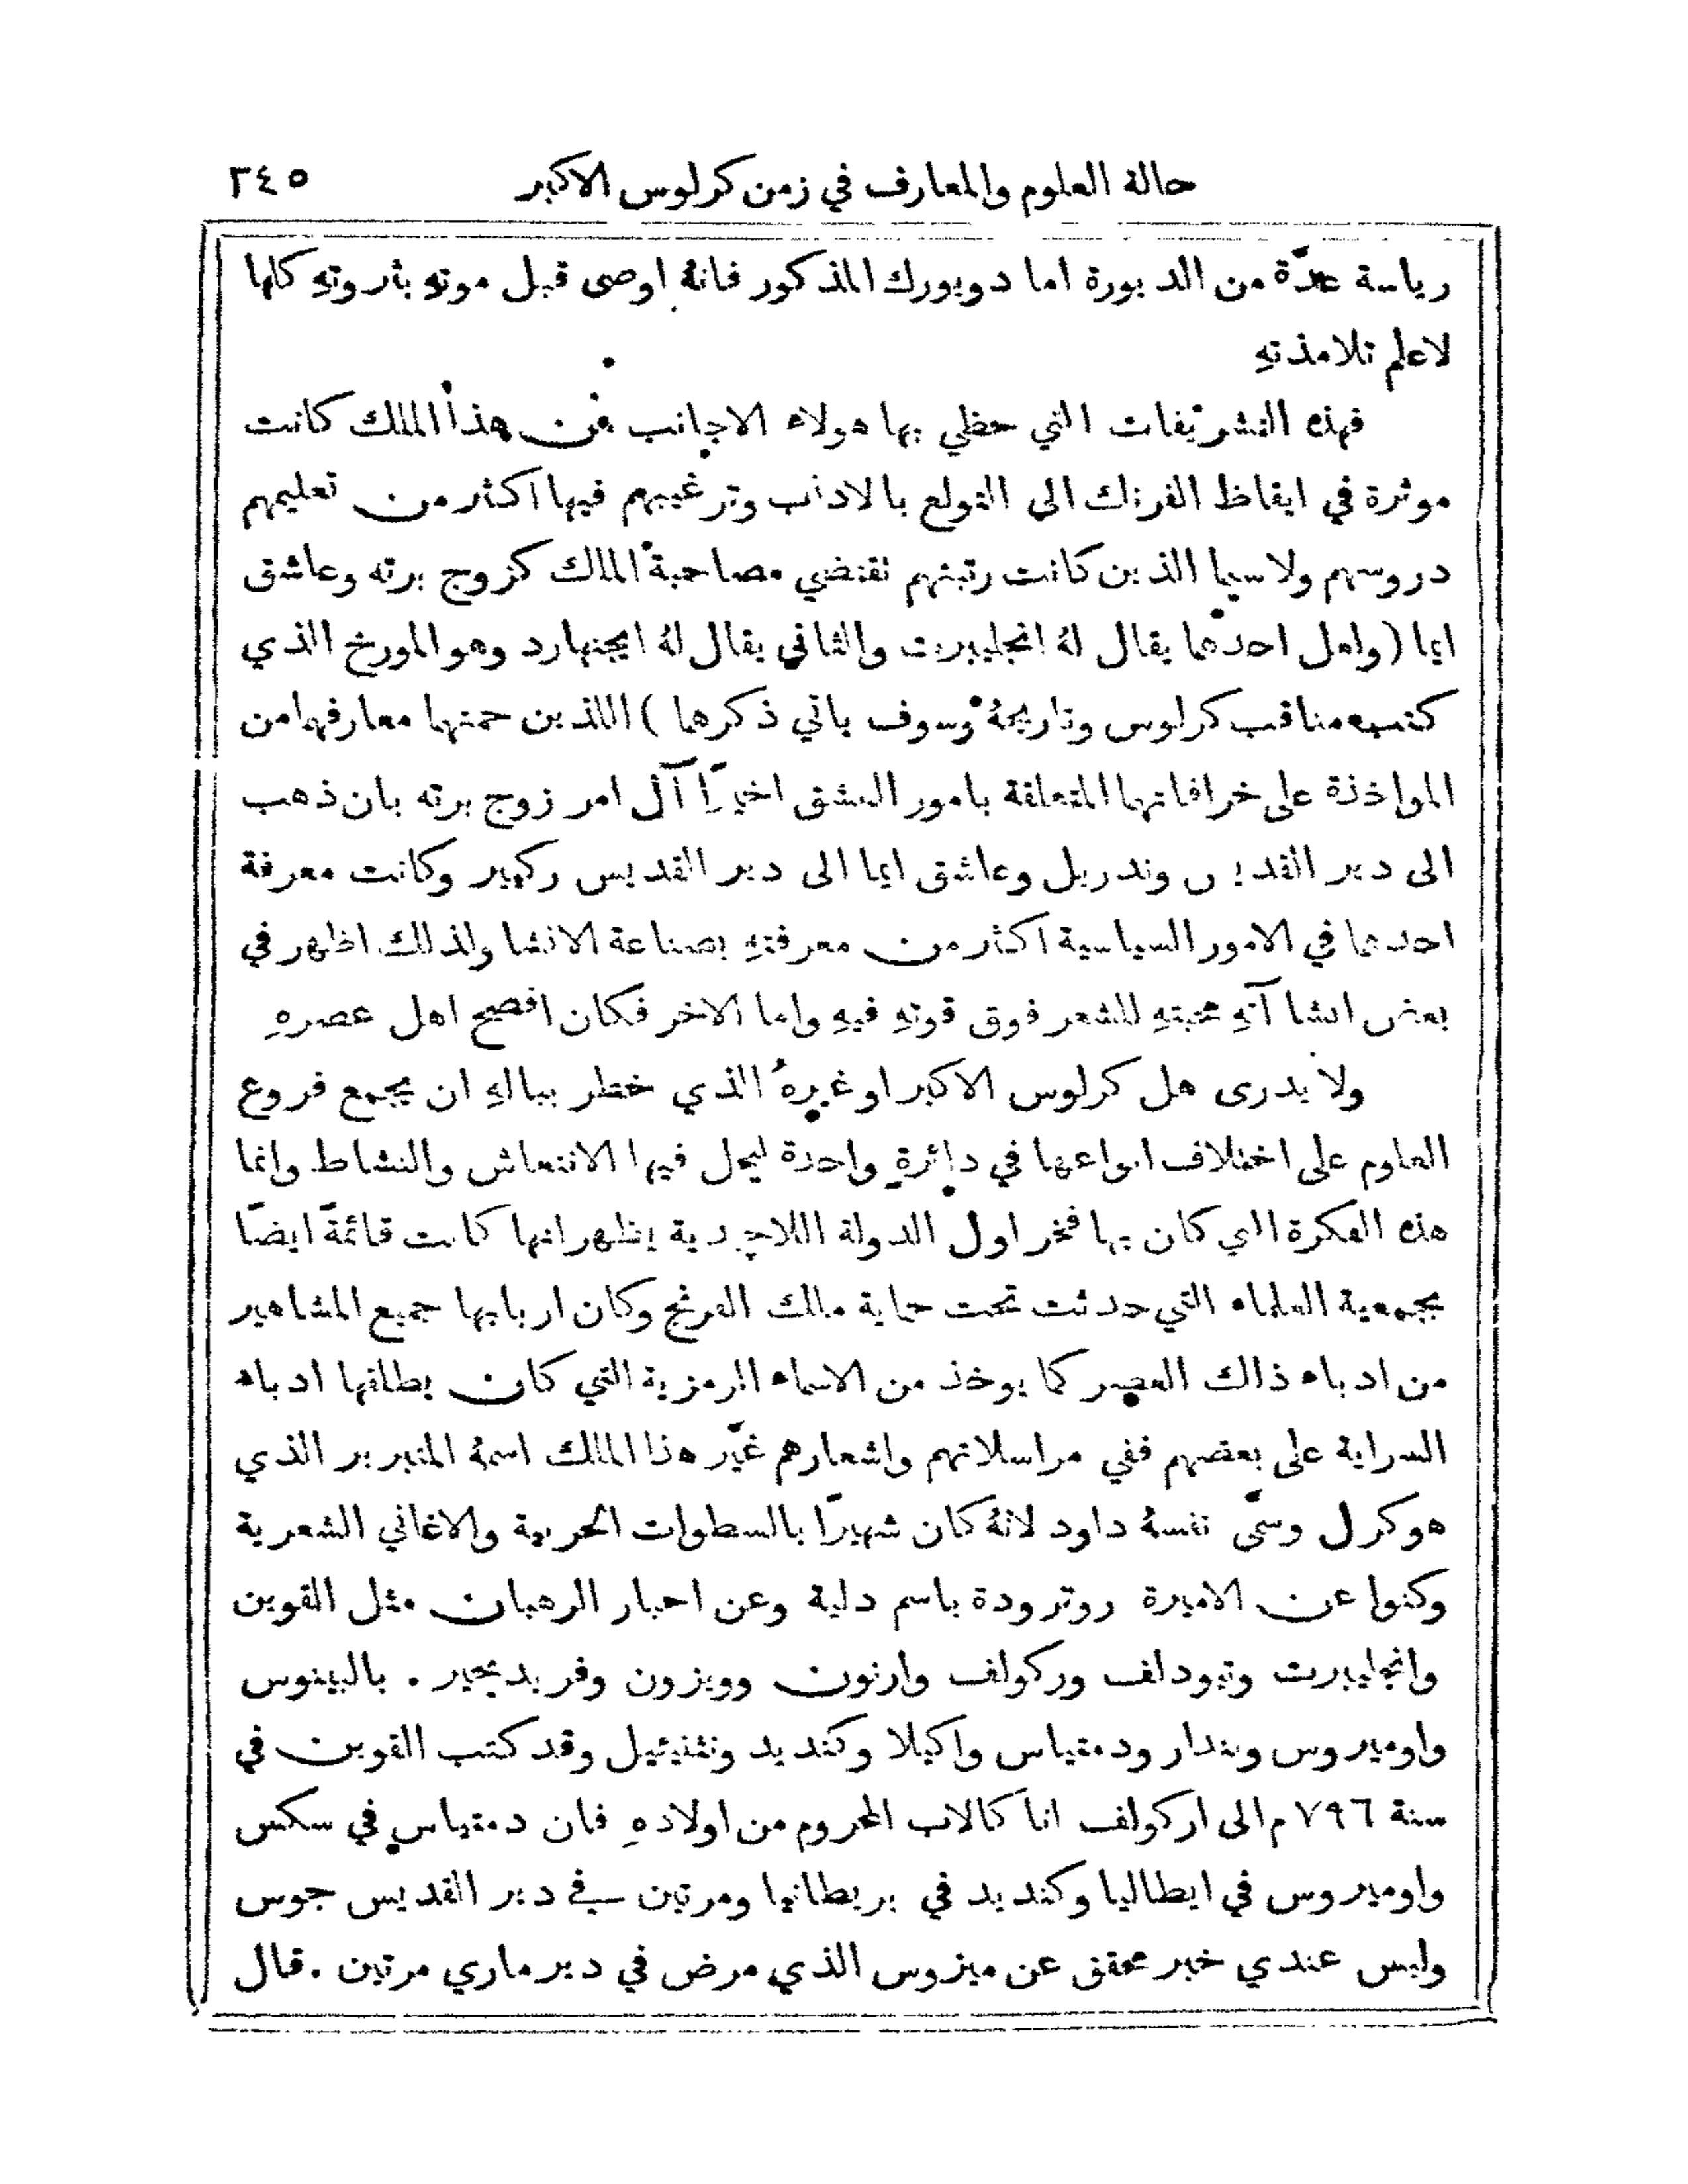 حالة العلوم والمعارف في زمن كرلوس الاكبر ٢٤٥
رياسة عدّة من الديورة اما دويورك المذكور فانهُ اوصى قبل موتهِ بثروتهِ كلها
لاعلم تلامذتهِ
فهذه التشريفات التي حظي بها هولاء الاجانب من هذا الملك كانت
موثرة في ايقاظ الفرنك الى التولع بالاداب وترغيبهم فيها اكثر من تعليمهم
دروسهم ولاسيما الذين كانت رتبتهم تقتضي مصاحبة الملك كزوج برته وعاشق
ايما (ولعل احدهما يقال لهُ انجليبرت والثاني يقال لهُ ايجنهارد وهو المورخ الذي
كتب مناقب كرلوس وتاريخهُ وسوف ياتي ذكرهما) اللذين حمتهما معارفهما من
المواخذة على خرافاتهما المتعلقة بامور العشق اخيرًا آل امر زوج برته بان ذهب
الى دير القديس وندريل وعاشق ايما الى دير القديس ركيير وكانت معرفة
احدهما في الامور السياسية اكثر من معرفتهِ بصناعة الانشا ولذلك اظهر في
بعض انشاآتهِ محبتهِ للشعر فوق قوتهِ فيهِ واما الاخر فكان افصح اهل عصرهِ
ولا يدرى هل كرلوس الاكبر او غيرهُ الذي خطر ببالهِ ان يجمع فروع
العلوم على اختلاف انواعها في دائرة واحدة ليحل فيها الانتعاش والنشاط وانما
هذه الفكرة التي كان بها فخر اول الدولة اللاجيدية يظهر انها كانت قائمة ايضًا
بجمعية العلماء التي حدثت تحت حماية ملك الفرنج وكان اربابها جميع المشاهير
من ادباء ذلك العصر كما يوخذ من الاسماء الرمزية التي كان يطلقها ادباء
السراية على بعضهم ففي مراسلاتهم واشعارهم غيّر هذا الملك اسمهُ المتبربر الذي
هو كرل وسمّى نفسهُ داود لانهُ كان شهيرًا بالسطوات الحربية والاغاني الشعرية
وكنوا عن الاميرة روترودة باسم دلية وعن احبار الرهبان مثل القوين
وانجليبرت وتيودلف وركولف وارنون وويزون وفريديجير . بالبينوس
واوميروس وبندار ودمتياس واكيلا وكنديد ونثنيئيل وقد كتب القوين في
سنة ٧٩٦ م الى اركولف انا كالاب المحروم من اولادهِ فان دمتياس في سكس
واوميروس في ايطاليا وكنديد في بريطانيا ومرتين في دير القديس جوس
وليس عندي خبر محقق عن ميزوس الذي مرض في دير ماري مرتين . قال